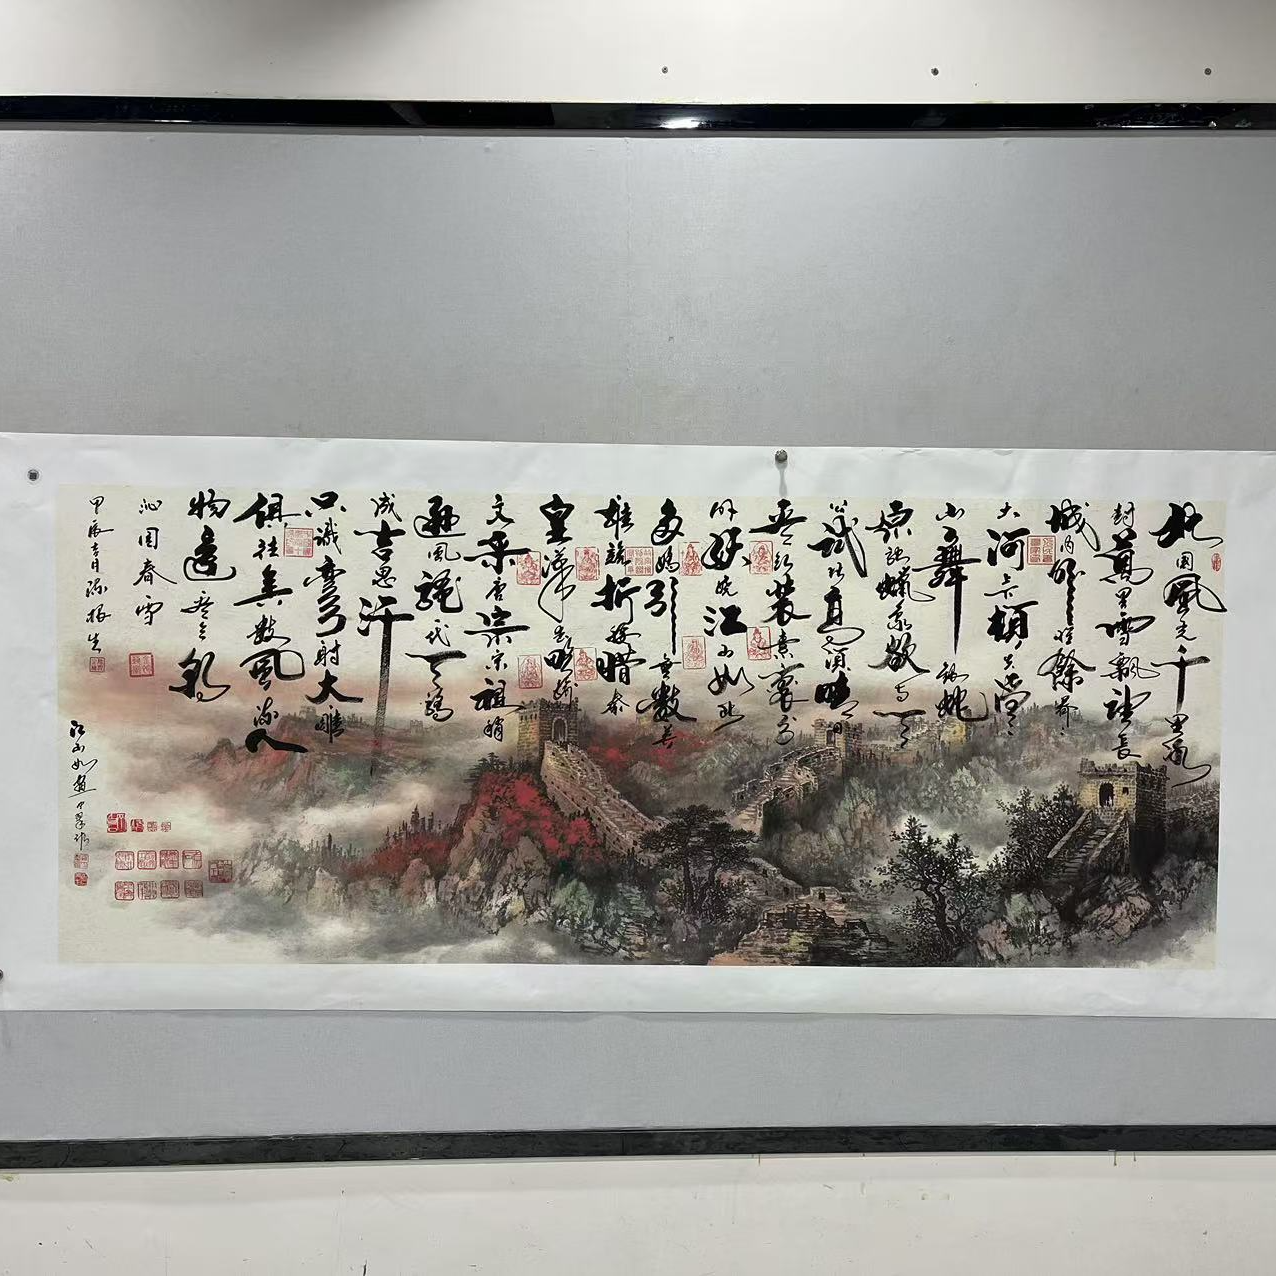 北国风光千里冰
封萬里雪飘望长
城内外惟餘莽〻
大河上下顿失滔〻
山舞银蛇
原驰蠟象欲与天
公試比高须晴日
看红装素裹分
外妖娆江山如此
多娇引无数英
雄竞折腰惜秦
皇漢武略输
文采唐宗宋祖稍
逊风骚一代天骄
成吉思汗
只識弯弓射大雕
俱往矣数风流人
物还看今朝
沁园春雪
江山如画